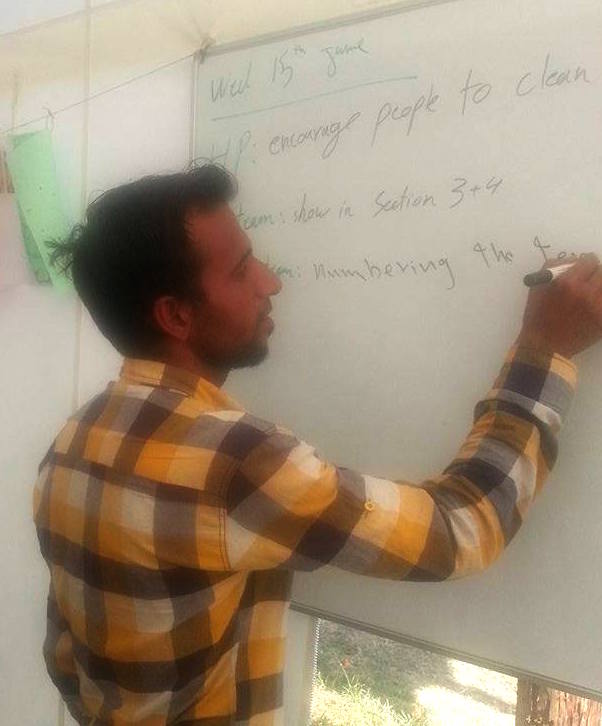 Wed 15th June
HP: encourage people to clean
team: show in Section 3+4
numbering the